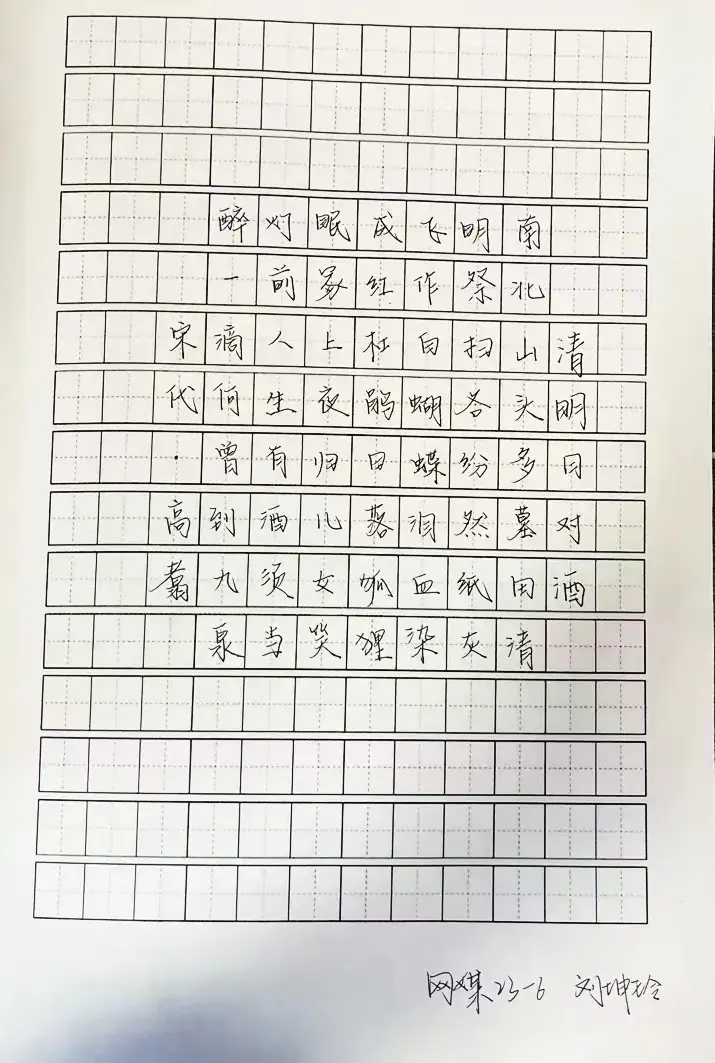 清明日对酒
南北山头多墓田清
明祭扫各纷然纸灰
飞作白蝴蝶泪血染
成红杜鹃日落狐狸
眠冢上夜归儿女笑
灯前人生有酒须当
醉一滴何曾到九泉
宋代·高翥
网媒23-6 刘坤玲